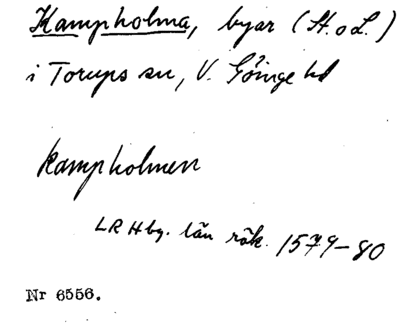 Kampholma, byar (St. o L.)
i Torups sn, V. Göinge hd
Kampholmen
LR Hbg. län räk. 1579-80
Nr 6556.